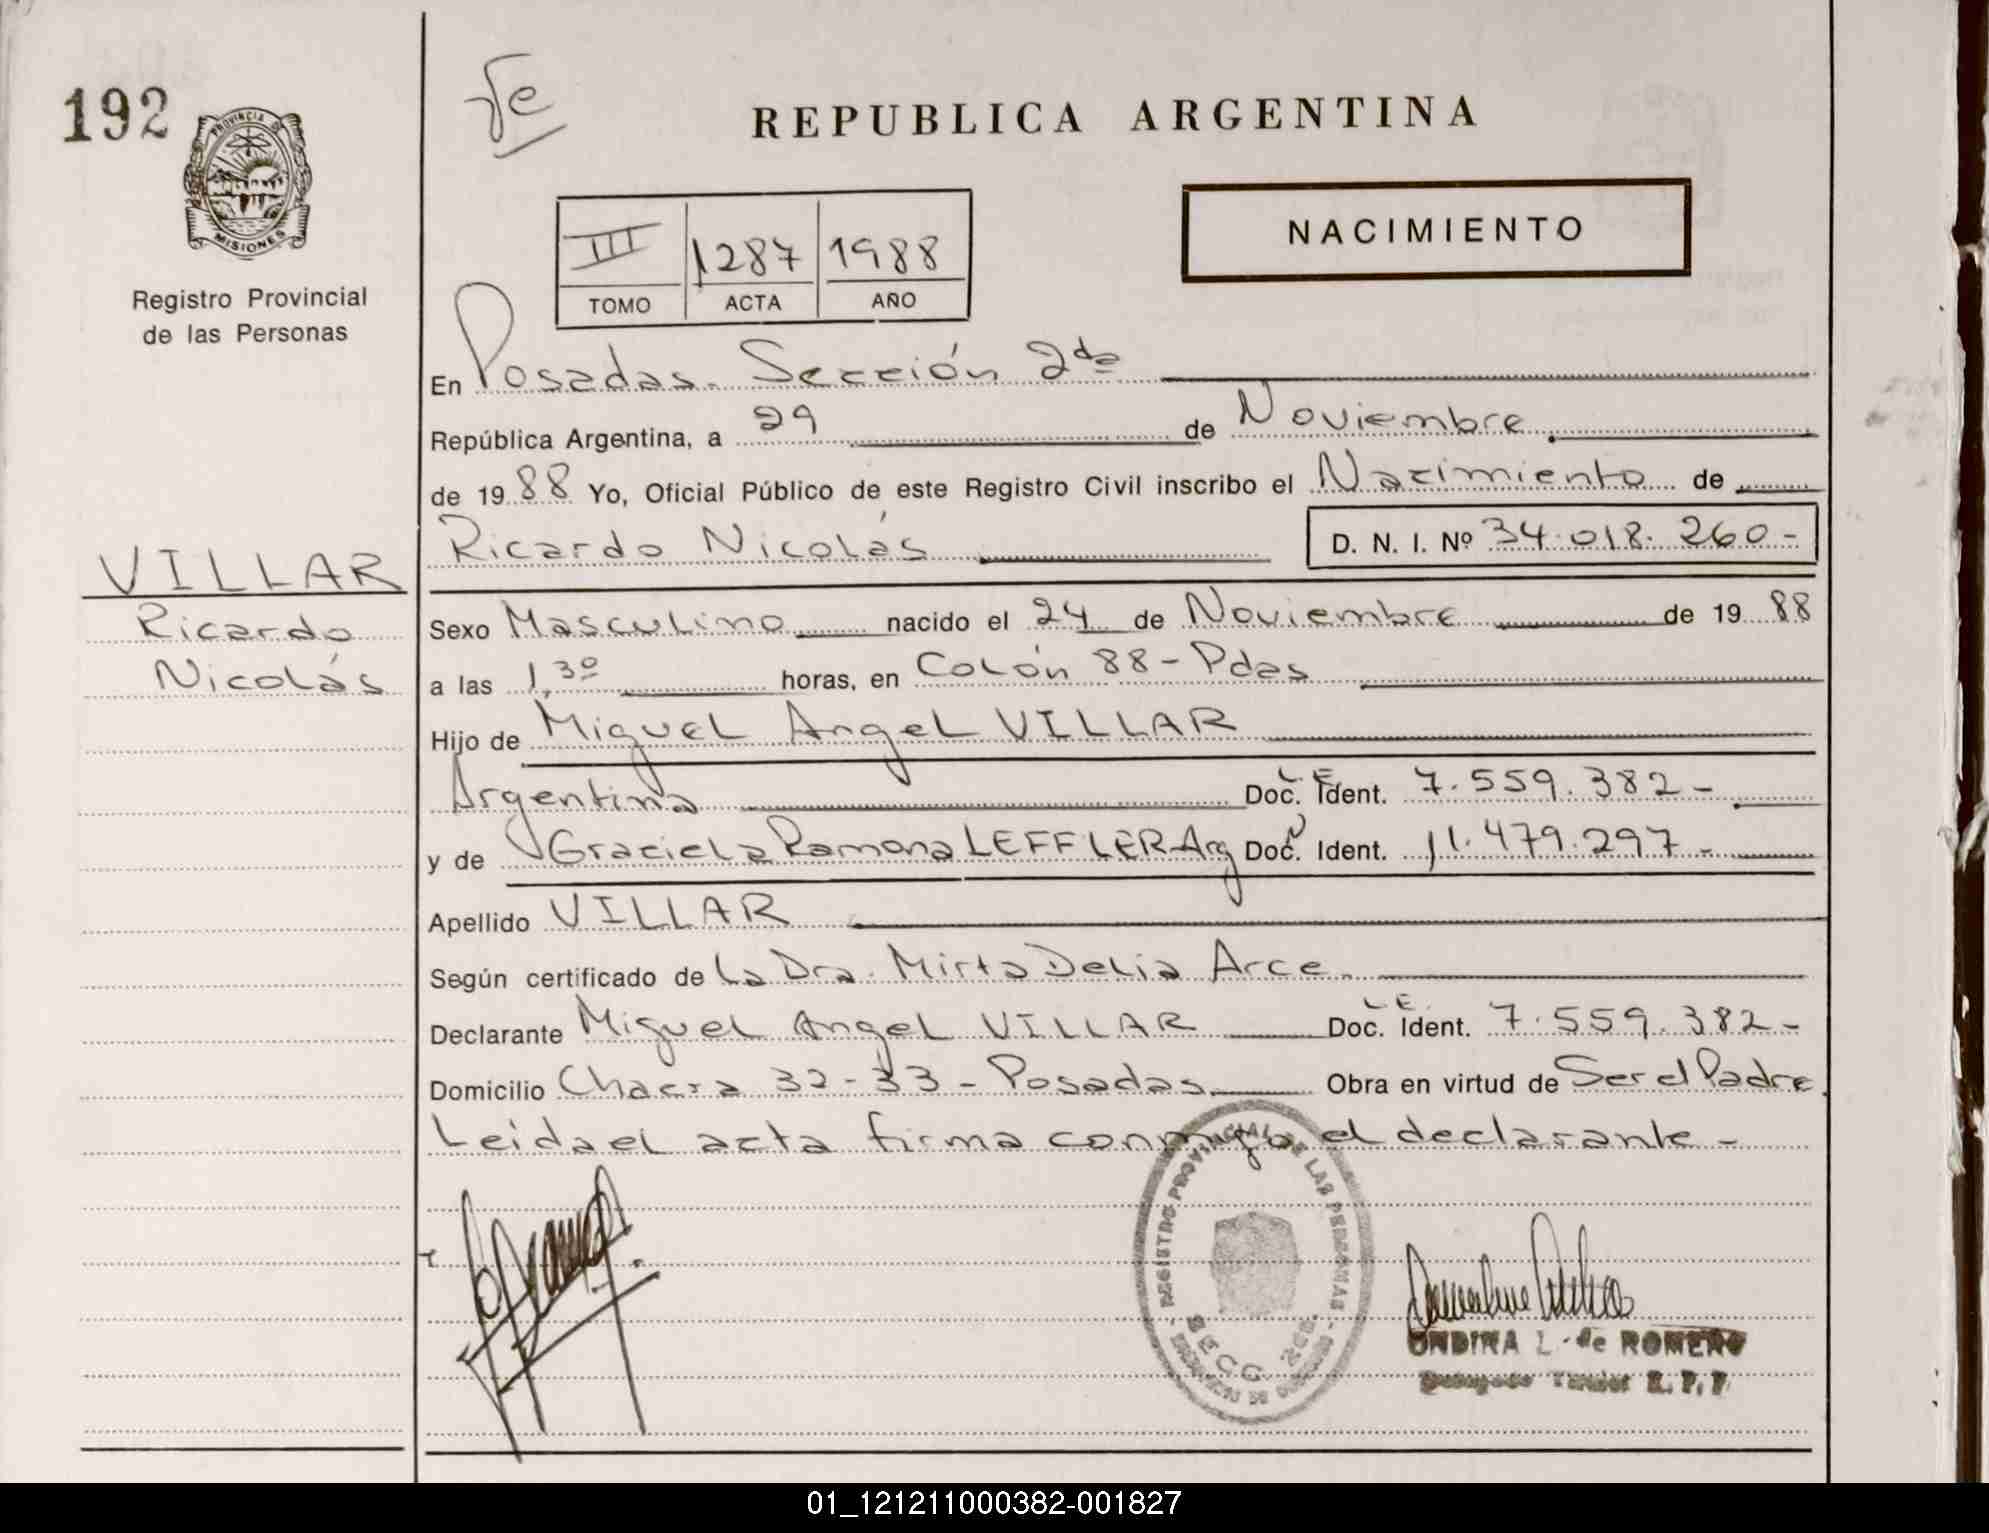 192
PROVINCIA DE
MISIONES
Registro Provincial
de las Personas
REPUBLICA ARGENTINA
NACIMIENTO
III 1287 1988
TOMO ACTA AÑO
En Posadas. Sección 2da
República Argentina, a 29 de Noviembre
de 1988 Yo, Oficial Público de este Registro Civil inscribo el Nacimiento de
Ricardo Nicolás D. N. I. Nº 34.018.260-
VILLAR
Ricardo
Nicolás
Sexo Masculino nacido el 24 de Noviembre de 1988
a las 1,30 horas, en Colón 88 - Pdas
Hijo de Miguel Angel VILLAR
Argentina L.E. Doc. Ident. 7.559.382-
y de Graciela Ramona LEFFLER Arg Doc. Ident. 11.479.297-
Apellido VILLAR
Según certificado de La Dra. Mirta Delia Arce.
Declarante Miguel Angel VILLAR L.E. Doc. Ident. 7.559.382-
Domicilio Chacra 32-33 - Posadas Obra en virtud de Ser el Padre
Leida el acta firma conmigo el declarante -
REGISTRO PROVINCIAL DE LAS PERSONAS
SECC. 2da.
ONDINA L. de ROMERO
R. P. P.
01_121211000382-001827